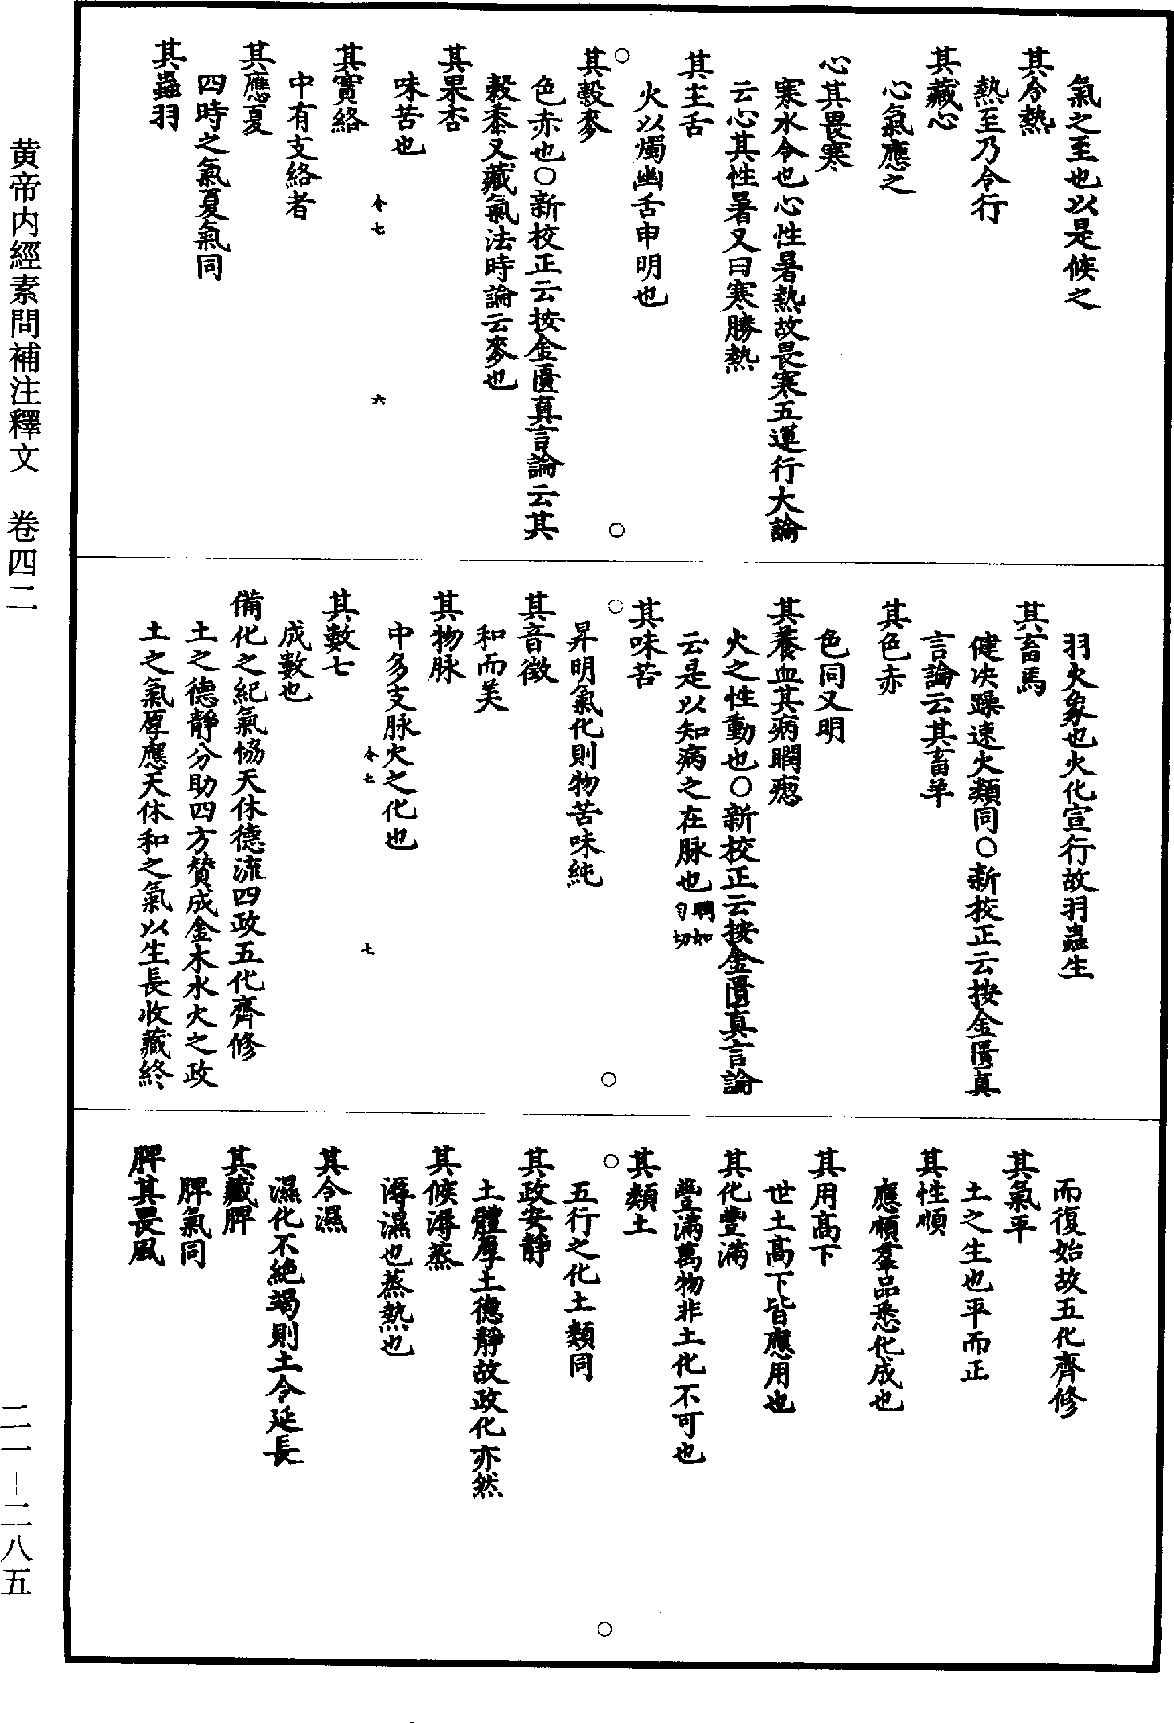 氣之至也以是候之
其令熱
熱至乃令行
其藏心
心氣應之
心其畏寒
寒水令也心性暑熱故畏寒五運行大論
云心其性暑又曰寒勝熱
其主舌
火以燭幽舌申明也
○
○
其穀麥
色赤也○新校正云按金匱真言論云其
穀黍又藏氣法時論云麥也
其果杏
味苦也
令七
六
其實絡
中有支絡者
其應夏
四時之氣夏氣同
其蟲羽
羽火象也火化宣行故羽蟲生
其畜馬
健决躁速火類同○新校正云按金匱真
言論云其畜羊
其色赤
色同又明
其養血其病瞤瘛
火之性動也○新校正云按金匱真言論
云是以知病之在脉也瞤如
勻切
其味苦
○
○
昇明氣化則物苦味純
其音徵
和而美
其物脉
中多支脉火之化也
令七
七
其數七
成數也
備化之紀氣恊天休德流四政五化齊修
土之德靜分助四方贊成金木水火之政
土之氣厚應天休和之氣以生長收藏終
而復始故五化齊修
其氣平
土之生也平而正
其性順
應順羣品悉化成也
其用高下
世土高下皆應用也
其化豐滿
豐滿萬物非土化不可也
其類土
○
○
五行之化土類同
其政安靜
土體厚土德靜故政化亦然
其候溽蒸
溽濕也蒸熱也
其令濕
濕化不絶竭則土令延長
其藏脾
脾氣同
脾其畏風
黄帝内經素問補注釋文　卷四二
二一－二八五